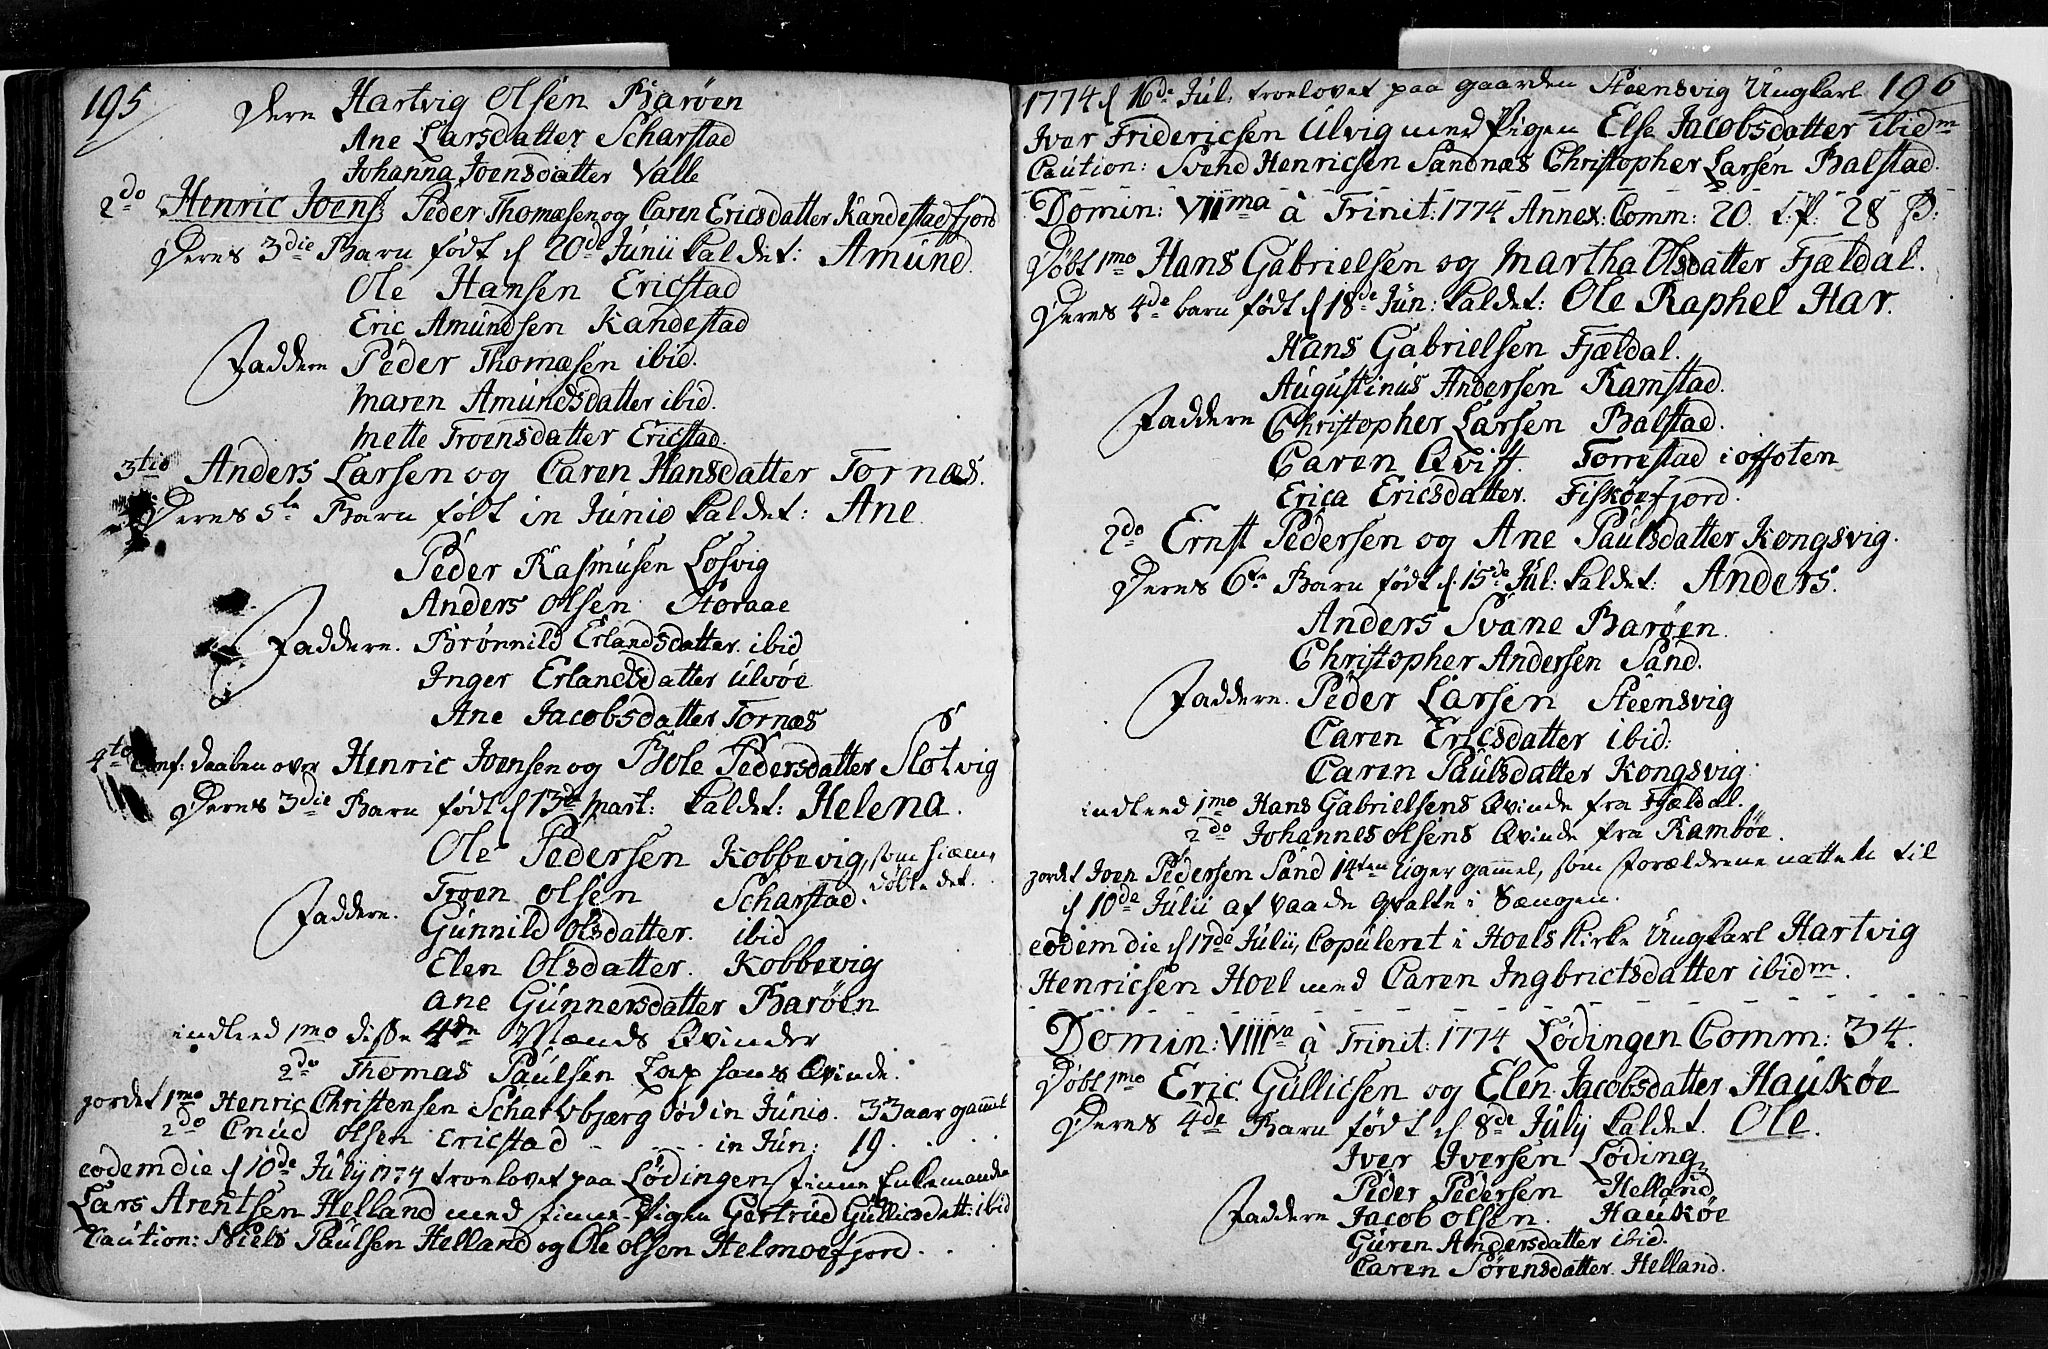 195
Dern Hartvig Olsen Barøen
Ane Larsdatter Scharstad
Johanna Joensdatter Valle
2do Henric Joens. Peder Thomæsen og Caren Ericsdatter Kandestadfjord
Deres 3die Barn født d 20de Junii kaldet: Amund.
Ole Hansen Ericstad
Eric Amundsen Kandestad
Faddere Peder Thomæsen ibid.
Maren Amundsdatter ibid.
Mette Troensdatter Ericstad.
3tio Anders Larsen og Caren Hansdatter Tornæs.
Deres 5te Barn født in Junio kaldet: Ane.
Peder Rasmusen Losvig
Anders Olsen Storaae
Faddere. Brønnild Erlandsdatter ibid
Inger Erlandsdatter Ulvøe
Ane Jacobsdatter Tornæs
4to Conf: daaben over Henric Joensen og Bole Pedersdatter Slotvig
Deres 3die Barn født d 13de Mart: kaldet: Helena.
Ole Pedersen Kobbevig, som hiem,
døbte det.
Troen Olsen Scharstad.
Faddere. Gunnild Olsdatter. ibid
Elen Olsdatter. Kobbevig
Ane Gunnersdatter Barøen
indleed 1mo disse 4de Mænds Qvinder
2do Thomas Paulsen Lap hans Qvinde.
jordet 1mo Henric Christensen Scharvbjærg død in Junio. 33 aar gammel
2do Cnud Olsen Ericstad - - - - in Jun: 19. . .
eodem die d 10de Julij 1774 troelovet paa Lødingen Finne Enkemanden
Lars Arentsen Helland med Finne Pigen Gertrud Gullicsdatt: ibid
Caution: Niels Paulsen Helland og Ole Olsen Helmoefjord.
1774 d 16de Jul: troelovet paa gaarden Steensvig Ungkarl 196
Iver Fridericsen Ulvig med Pigen Else Jacobsdatter ibidm
Caution: Svend Henricsen Sandnæs Christopher Larsen Balstad.
Domin: VIIma à Trinit: 1774 Annex: Comm: 20. t. P: 28 β:
Døbt 1mo Hans Gabrielsen og Martha Olsdatter Fjældal.
Deres 4de barn født d 18de Jun: kaldet: Ole Raphel Har.
Hans Gabrielsen Fjældal.
Augustinus Andersen Ramstad.
Faddere Christopher Larsen Balstad.
Caren Qvist. Torrestad i Offoten
Erica Ericsdatter. Fiskøefjord.
2do Ernst Pedersen og Ane Paulsdatter Kongsvig.
Deres 6te Barn født d. 15de Jul: kaldet: Anders.
Anders Svane Barøen.
Christopher Andersen Sand.
Faddere. Peder Larsen Steensvig
Caren Ericsdatter ibid:
Caren Paulsdatter Kongsvig.
indleed 1mo Hans Gabrielsens Qvinde fra Fjældal.
2do Johannes Olsens Qvinde fra Rambøe.
jordet Iven Pedersen Sand 14ten Uger gammel, som Forældrene natten til
d 10de Julii af vaade qvalte i Sængen.
eodem die d 17de Julii, Copuleret i Hoels Kirke Ungkarl Hartvig
Henricsen Hoel med Caren Ingbrictsdatter ibidm.
Domin: VIIIva à Trinit: 1774 Lødingen Comm: 34.
Døbt 1mo Eric Gullicsen og Elen Jacobsdatter Haukøe
Deres 4de Barn født d 8de July kaldet. Ole.
Iver Iversen Løding
Peder Pedersen Helland
Faddere Jacob Olsen. Haukøe
Guren Andersdatter ibid.
Caren Sørensdatter. Helland.